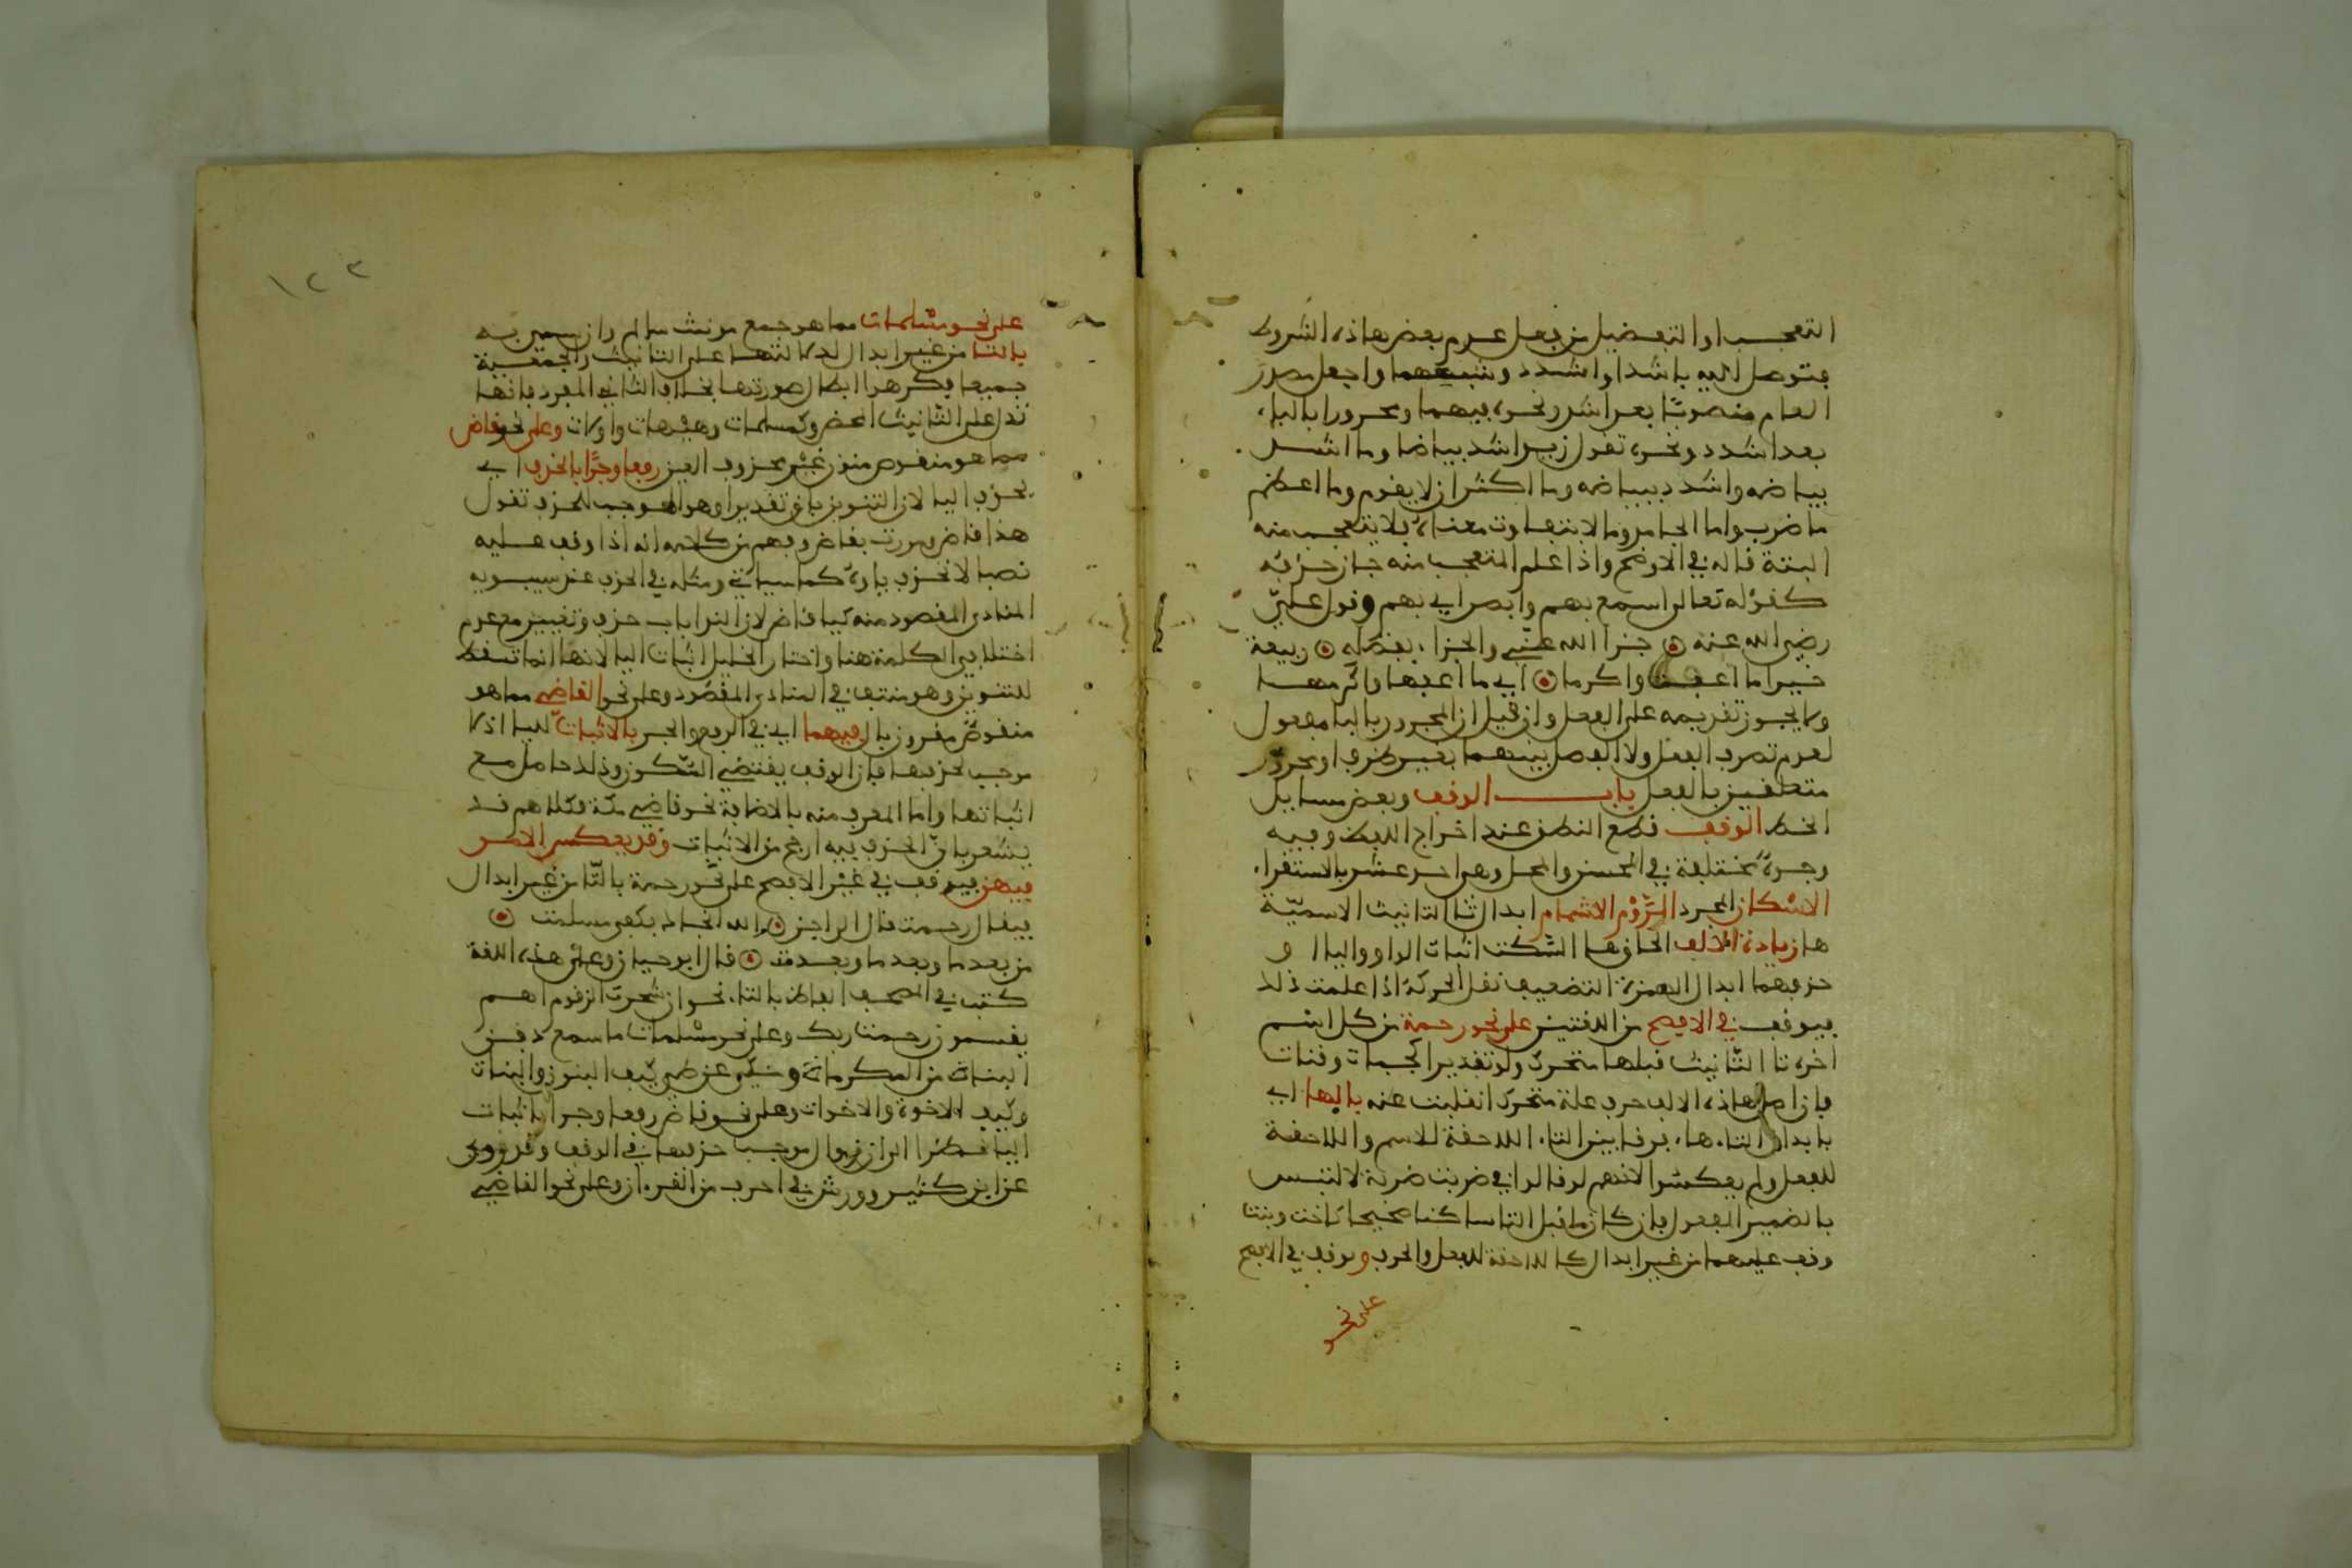 التعجب او التفضيل من فعل عدم بعض هاذه الشروط
فتوصل اليه باشد او اشدد وشبههما واجعل مصدر
العادم منصوبا بعد اشد ونحوه فيهما ومجرورا بالباء
بعد اشدد ونحوه تقول زيد اشد بياضا وما اشد
بياضه واشدد ببياضه وما اكثر ان لا يقوم وما اعظم
ما ضرب واما الجامد وما لا يتفاوت معناه فلا يتعجب منه
البتة قاله في الاوضح واذا علم المتعجب منه جاز حذفه
كقوله تعالى اسمع بهم وابصر اي بهم وقول علي
رضي الله عنه جزا الله عني والجزاء بفضله ربيعة
خيرا ما اعف واكرما اي ما اعفها واكرمها
ولا يجوز تقديمه على الفعل وان قيل ان المجرور بالباء مفعول
لعدم تصرف الفعل ولا الفصل بينهما بغير ظرف او مجرور
متعلقين بالفعل باب الوقف وبعض مسايل
الخط الوقف قطع النطق عند اخراج اللفظ وفيه
وجوه مختلفة في الحسن والمحل وهي احد عشر بالاستقراء
الاسكان المجرد الروم الاشمام ابدال تا التانيث الاسمية
ها زيادة الالف الحاق ها السكت اثبات الواو واليا او
حذفهما ابدال الهمزة التضعيف نقل الحركة اذا علمت ذلك
فيوقف في الافصح من اللغتين على نحو رحمة من كل اسم
اخره تا التانيث قبلها متحرك ولو تقديرا كحمات وقنات
فان اصل هاذه الالف حرف علة متحرك انقلبت عنه بالها اي
بابدال التاء هاء فرقا بين التاء اللاحقة للاسم واللاحقة
للفعل ولم يعكسوا لانهم لو قالوا في ضربت ضربه لالتبس
بالضمير المفعول فان كان ما قبل التا ساكنا صحيحا كاخت وبنت
وقف عليهما من غير ابدال كاللاحقة للفعل والحرف ويوقف في الافصح
على نحو
١٢٣
على نحو مسلمات مما هو جمع مونث سالم وان سمي به
بالتا من غير ابدال لدلالتها على التانيث والجمعية
جميعا فكرهوا ابطال صورتها بخلاف التا في المفرد فانها
تدل على التانيث المحض وكمسلمات وهيهات واولات وعلى نحو قاض
مما هو منقوص منون غير محذوف العين رفعا وجرا بالحذف اي
بحذف اليا لان التنوين باق تقديرا وهو الموجب للحذف تقول
هذا قاض ومررت بقاض وفهم من كلامه انه اذا وقف عليه
نصبا لا تحذف ياوه كما سياتي ومثله في الحذف عند سيبويه
المنادى المقصود منه كيا قاض لان الندا باب حذف وتغيير مع عدم
اختلافي الكلمة هنا واختار الخليل اثبات اليا لانها انما تسقط
للتنوين وهو منتف في المنادى المقصود وعلى نحو القاضي مما هو
منقوص مقرون بال فيهما اي في الرفع والجر بالاثبات لليا اذ لا
موجب لحذفها فان الوقف يقتضي السكون وذلك حاصل مع
اثباتها واما المعرف منه بالاضافة نحو قاضي مكة فكلامهم قد
يشعر بان الحذف فيه ارجح من الاثبات وقد يعكس الامر
فيهن فيوقف في غير الافصح على نحو رحمة بالتا من غير ابدال
فيقال رحمت قال الراجز الله انجاك بكفي مسلمت
من بعد ما وبعد ما وبعدمت قال ابو حيان وعلى هذه اللغة
كتب في المصحف الفاظ بالتاء نحو ان شجرت الزقوم اهم
يقسمون رحمت ربك وعلى نحو مسلمات ما سمع دفن
البناه من المكرماه وحكي عن طيء كيف البنون والبناه
وكيف الاخوة والاخوات وعلى نحو قاض رفعا وجرا باثبات
اليا نظرا الى ان زوال موجب حذفها في الوقف وقد روي
عن ابن كثير وورش في احرف من القرءان وعلى نحو القاضي